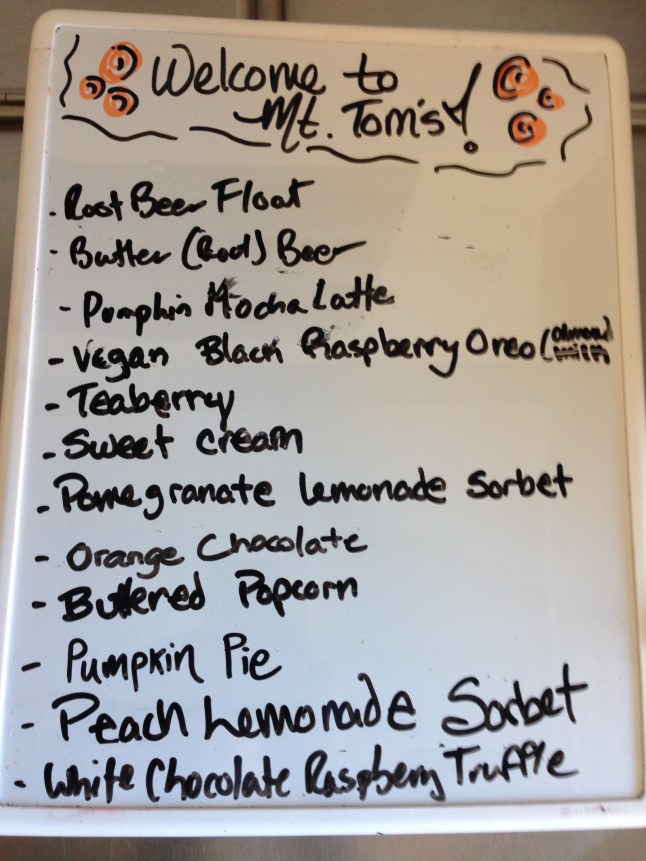 Welcome to
Mt. Tom's!
· Root Beer Float
· Butter (Rod) Beer
- Pumpkin Mocha Latte
- Vegan Black Raspberry Oreo (almond milk)
- Teaberry
- Sweet Cream
- Pomegranate Lemonade Sorbet
- Orange Chocolate
- Buttered Popcorn
- Pumpkin Pie
- Peach Lemonade Sorbet
- White Chocolate Raspberry Truffle